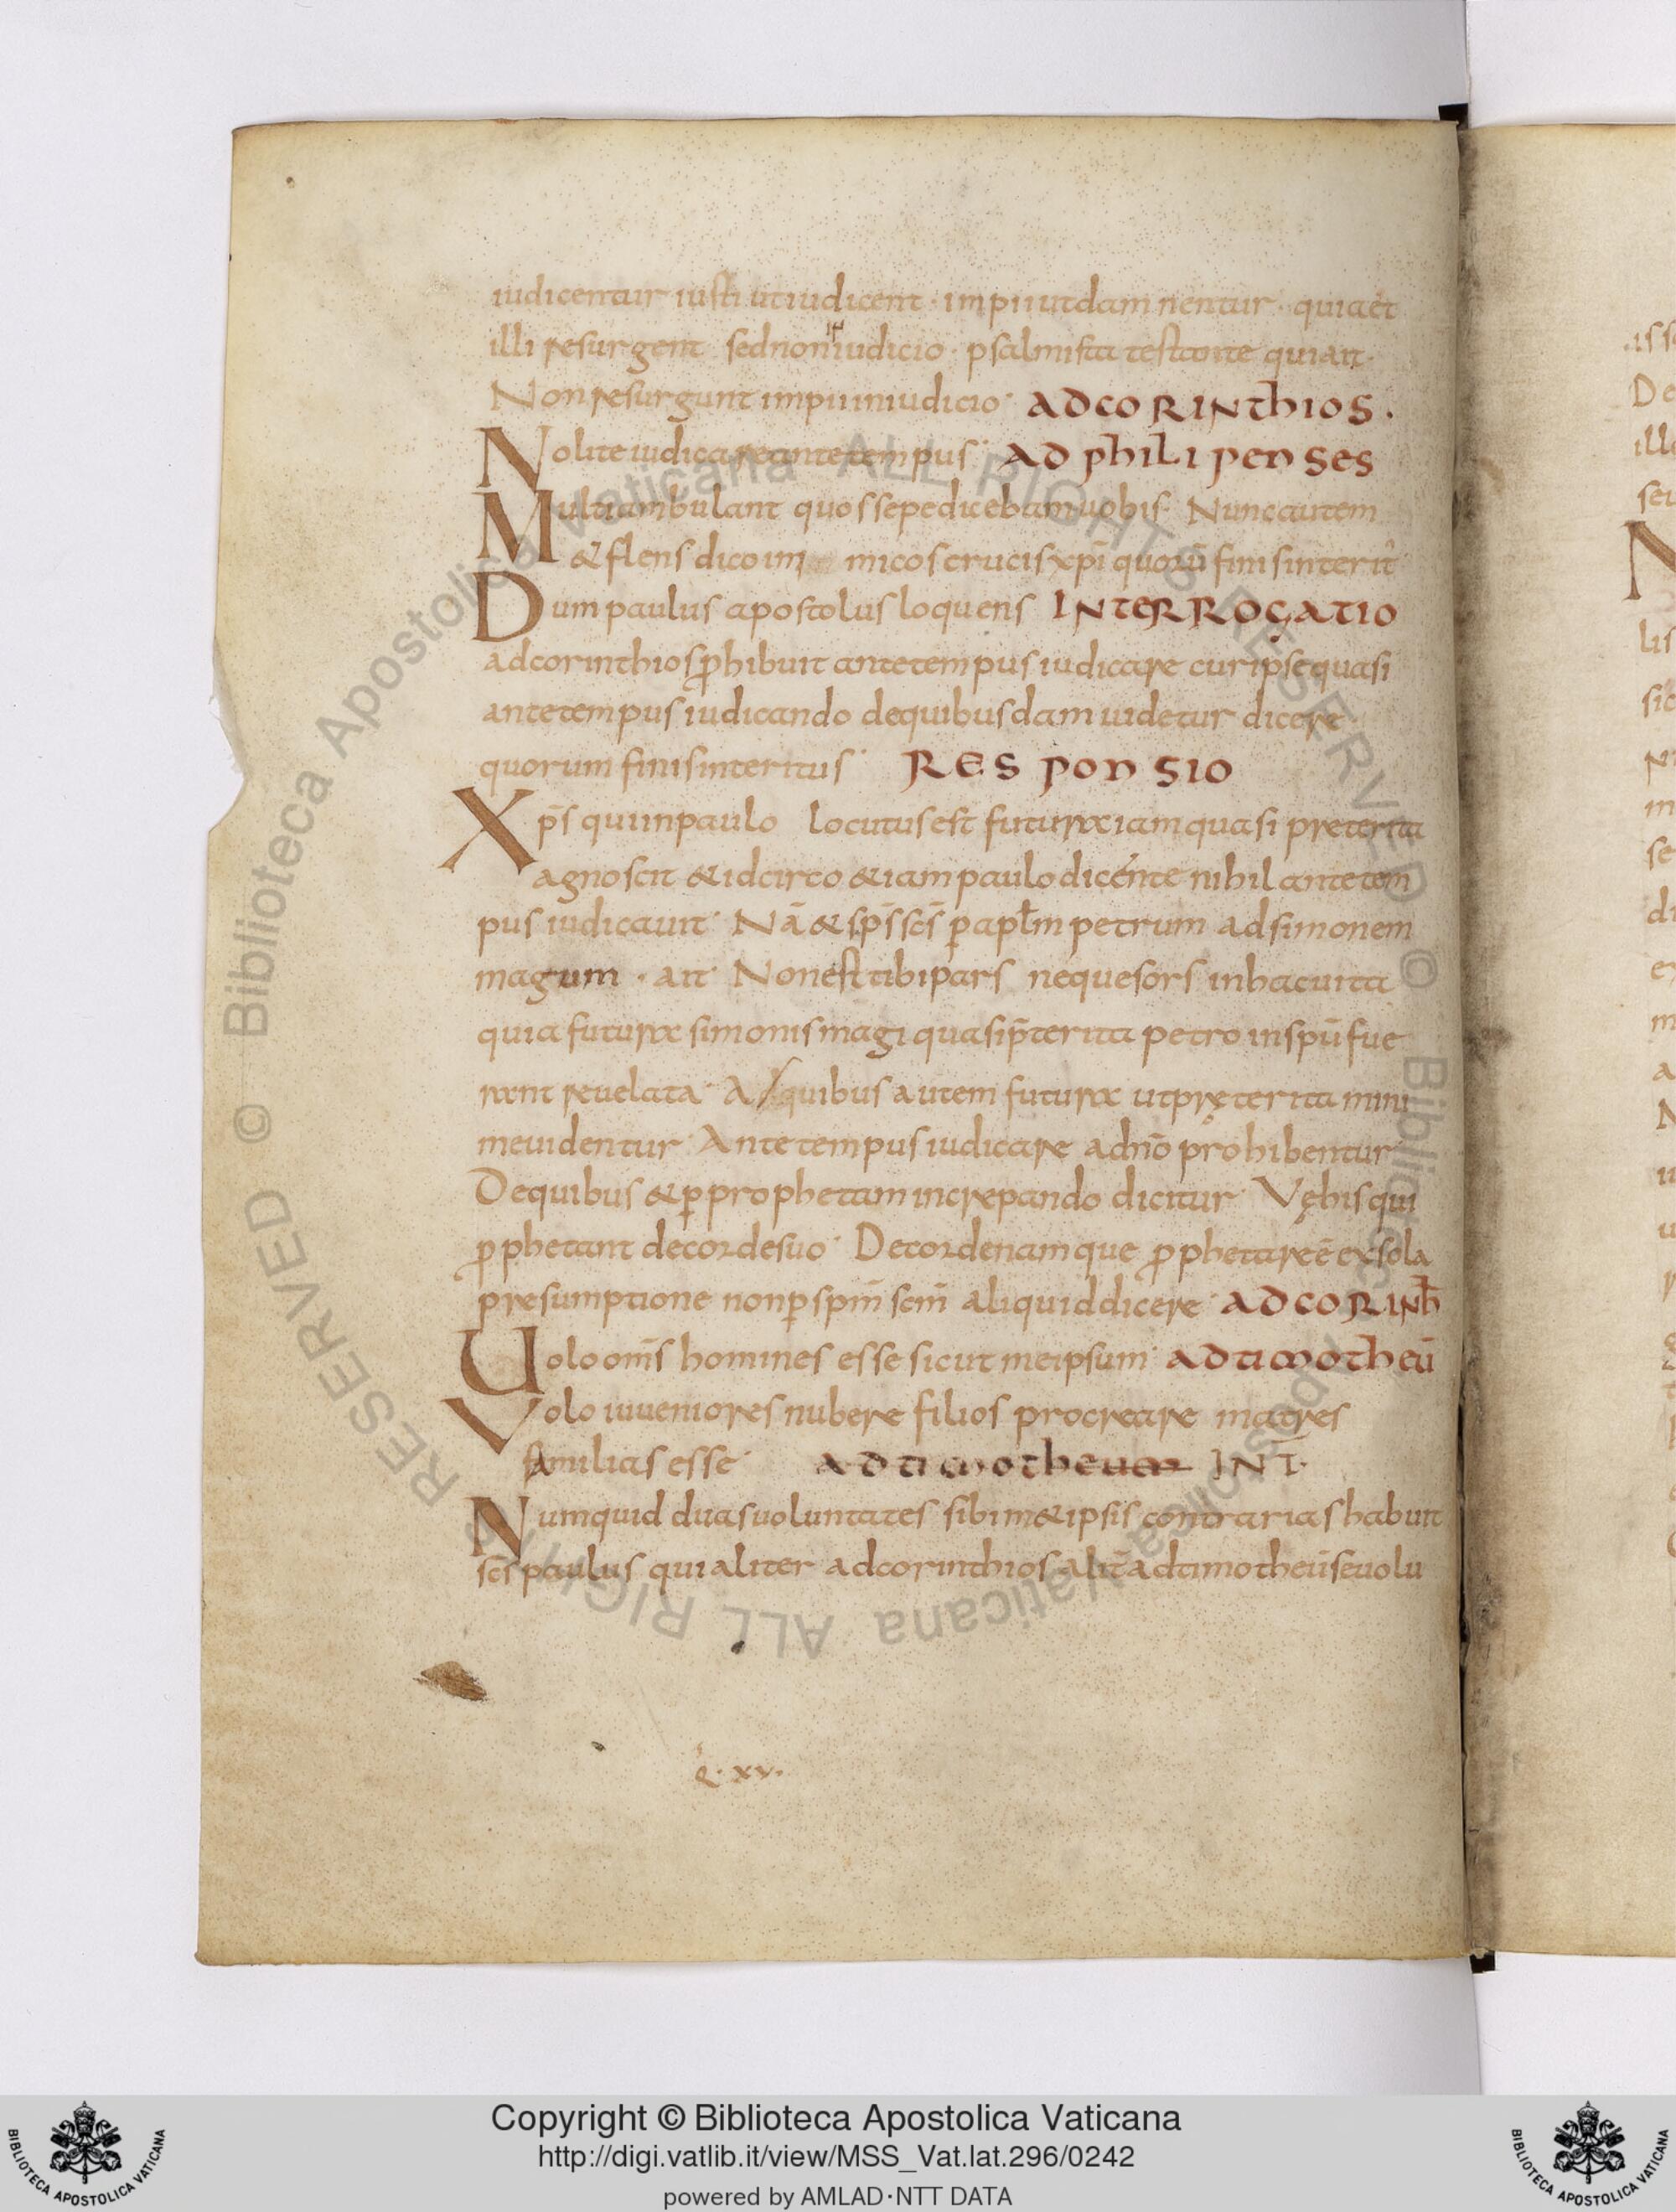 iudicentur iusti ut iudicent · impii ut damnentur · quia et
illi resurgent sed non in iudicio · psalmista testante qui ait ·
Non resurgunt impii in iudicio · AD CORINTHIOS ·
Nolite iudicare ante tempus · AD PHILIPENSES
Multi ambulant quos sepe dicebam uobis · Nunc autem
& flens dico inimicos crucis xpī quorū finis interit
Dum paulus apostolus loquens INTERROGATIO
ad corinthios ꝓhibuit ante tempus iudicare cur ipse quasi
ante tempus iudicando de quibusdam uidetur dicere
quorum finis interitus · RESPONSIO
Xp̄s qui in paulo locutus est futura iam quasi preterita
agnoscit & idcirco & iam paulo dicente nihil ante tem
pus iudicauit · Nā & sp̄s sc̄s ꝑ apl̄m petrum ad simonem
magum · ait · Non est tibi pars neque sors in hac uita
quia futura simonis magi quasi p̄terita petro in spū fue
rant reuelata · A quibus autem futura ut pręterita mini
me uidentur · Ante tempus iudicare a dn̄o prohibentur ·
De quibus & ꝑ prophetam increpando dicitur · Vę his qui
ꝓphetant de corde suo · De corde namque ꝓphetare ē ex sola
presumptione non ꝑ spm̄ scm̄ aliquid dicere · AD CORINH̄
Uolo om̄s homines esse sicut meipsum · AD TIMOTHEŪ
Volo iuueniores nubere filios procreare matres
familias esse · AD TIMOTHEUM INT̄ ·
Numquid duas uoluntates sibim&ipsis contrarias habuit
sc̄s paulus qui aliter ad corinthios alit̄ ad timotheū se uolu
Q · xv ·
© Biblioteca Apostolica Vaticana ALL RIGHTS RESERVED © Biblioteca Apostolica Vaticana ALL RIGHTS RESERVED
Copyright © Biblioteca Apostolica Vaticana
http://digi.vatlib.it/view/MSS_Vat.lat.296/0242
powered by AMLAD·NTT DATA
BIBLIOTECA APOSTOLICA VATICANA
BIBLIOTECA APOSTOLICA VATICANA